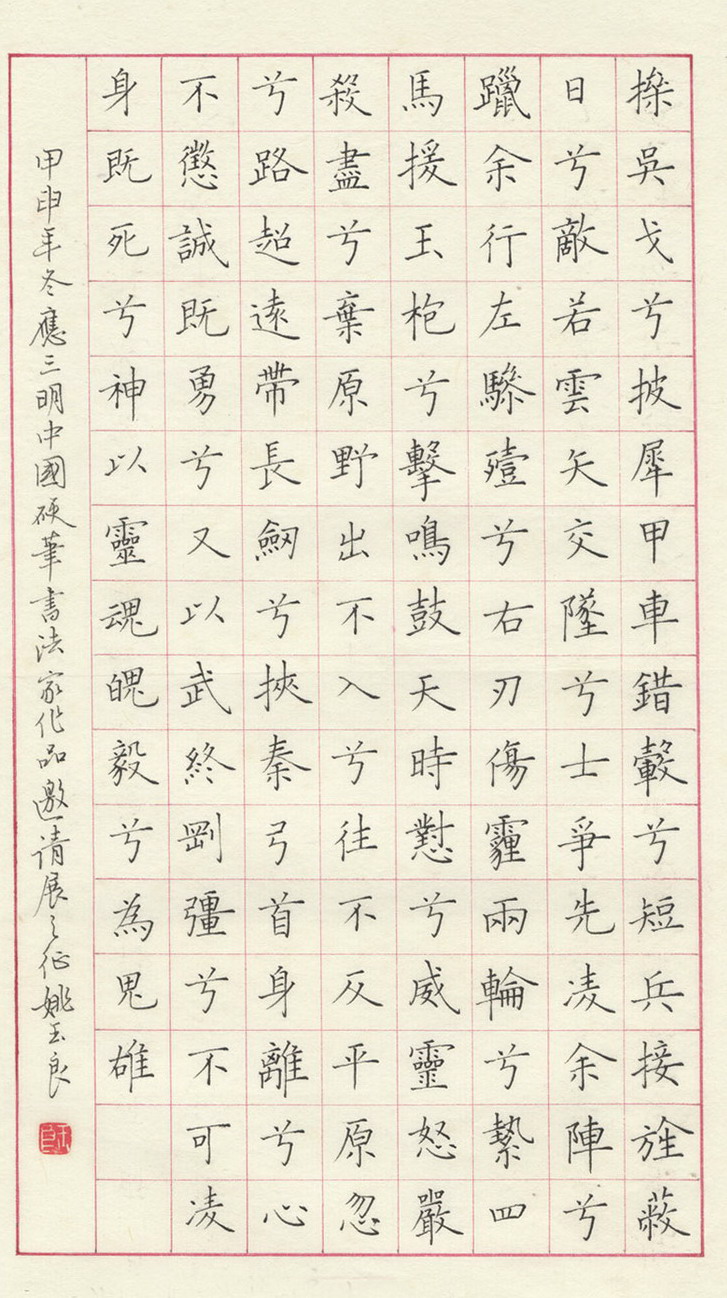 操吳戈兮披犀甲車錯轂兮短兵接旌蔽
日兮敵若雲矢交墜兮士爭先凌余陣兮
躐余行左驂殪兮右刃傷霾兩輪兮縶四
馬援玉枹兮擊鳴鼓天時懟兮威靈怒嚴
殺盡兮棄原野出不入兮往不反平原忽
兮路超遠帶長劒兮挾秦弓首身離兮心
不懲誠既勇兮又以武終剛彊兮不可凌
身既死兮神以靈魂魄毅兮為鬼雄
甲申年冬應三明中國硬筆書法家作品邀请展之征姚玉良